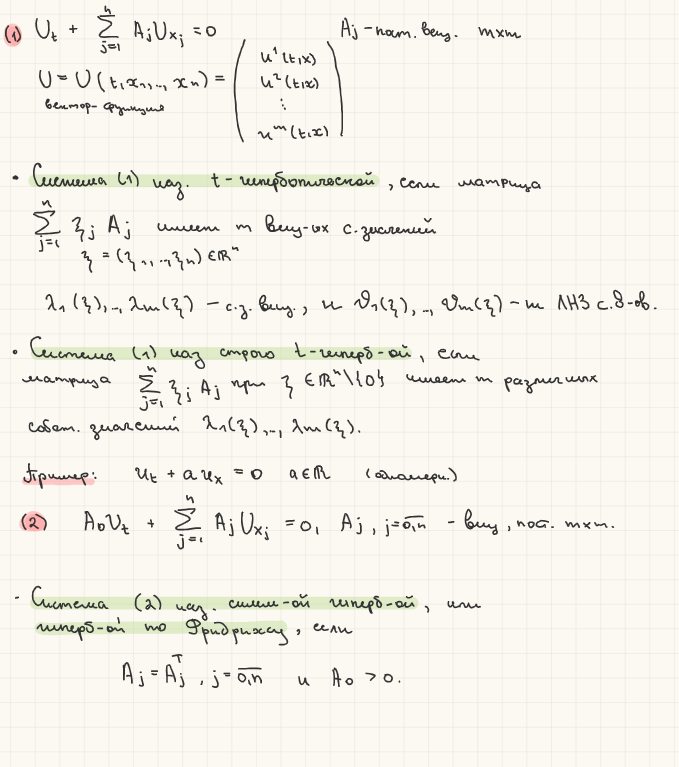 (1) U_t + \sum_{j=1}^{n} A_j U_{x_j} = 0    A_j - пост. вещ. m×m
U = U(t, x_1, .., x_n) = \begin{pmatrix} u^1(t,x) \\ u^2(t,x) \\ \vdots \\ u^m(t,x) \end{pmatrix}
вектор-функция
• Система (1) наз. t-гиперболической, если матрица
\sum_{j=1}^{n} ξ_j A_j имеет m вещ-ых с.значений
ξ = (ξ_1, .., ξ_n) ∈ ℝ^n
λ_1(ξ), .., λ_m(ξ) - с.з. вещ., и v_1(ξ), .., v_m(ξ) - m ЛНЗ с.в-ов.
• Система (1) наз строго t-гиперб-ой, если
матрица \sum_{j=1}^{n} ξ_j A_j при ξ ∈ ℝ^n \ {0} имеет m различных
собст. значений λ_1(ξ), .., λ_m(ξ).
Пример: u_t + a u_x = 0    a ∈ ℝ    (одномерн.)
(2) A_0 U_t + \sum_{j=1}^{n} A_j U_{x_j} = 0, A_j, j = \overline{0,n} - вещ, пост. m×m.
• Система (2) наз. симм-ой гиперб-ой, или
гиперб-ой по Фридрихсу, если
A_j = A_j^T, j = \overline{0,n} и A_0 > 0.